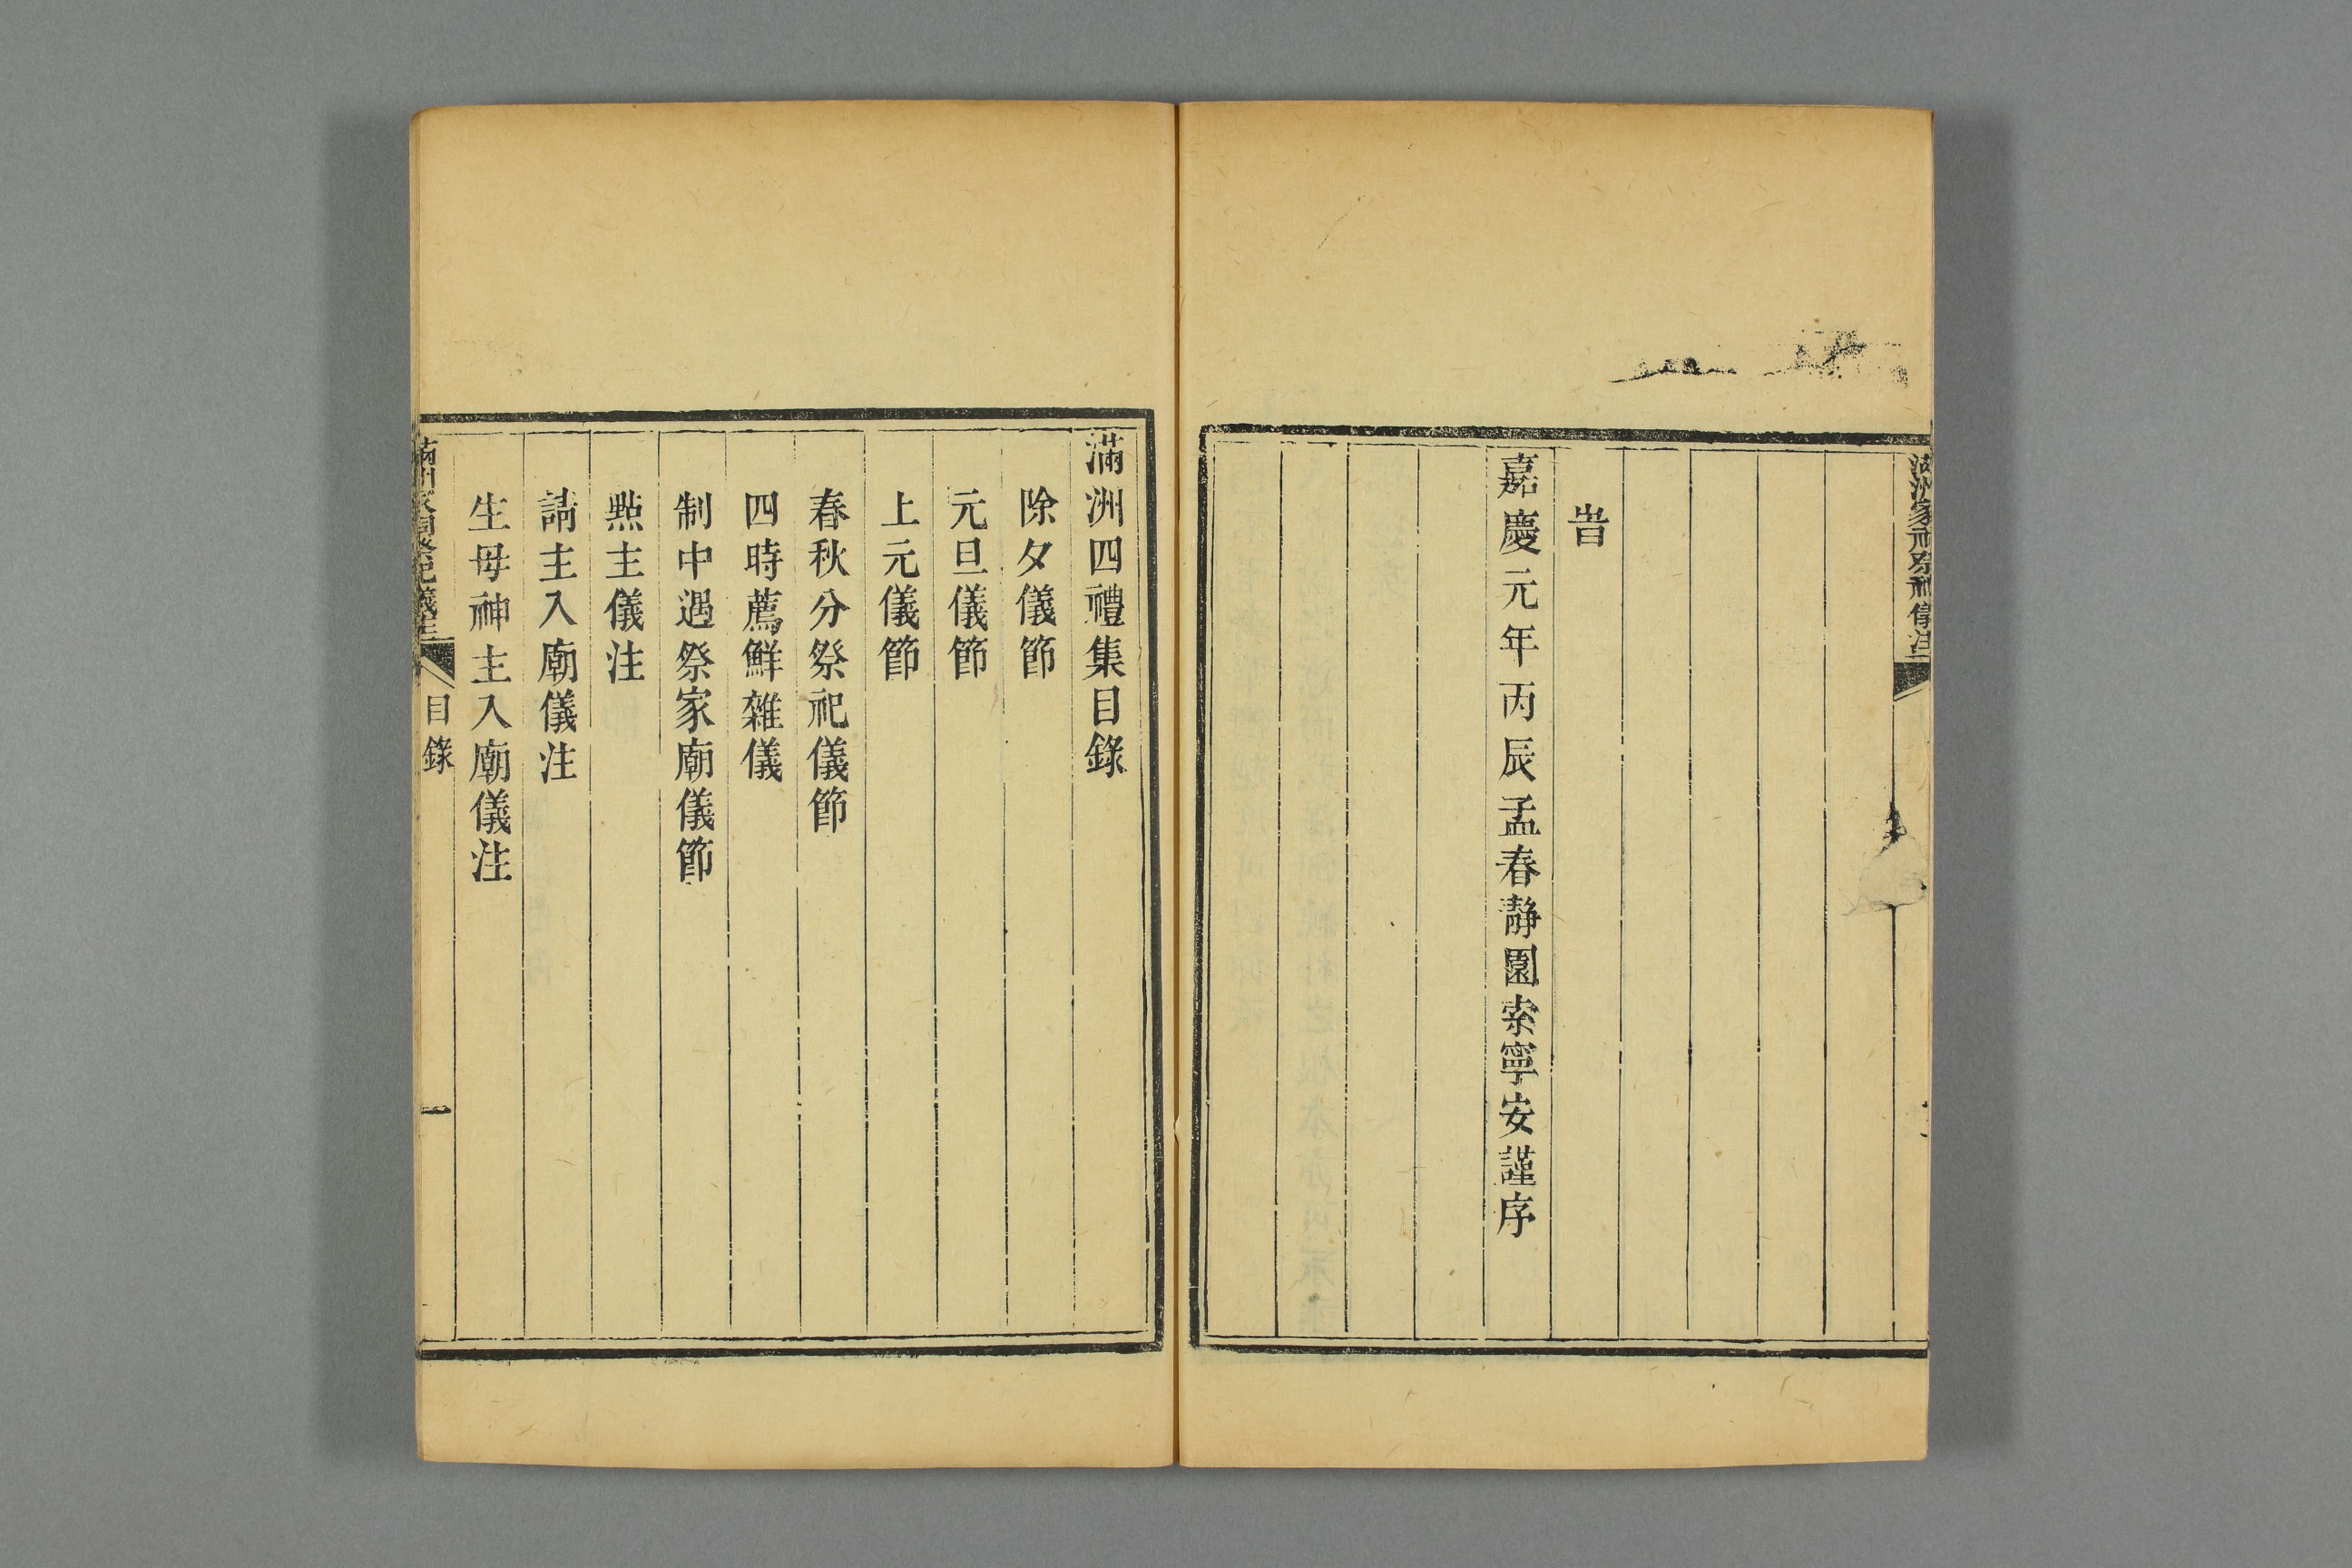 旹
嘉慶元年丙辰孟春靜園索寧安謹序
滿洲四禮集目錄
除夕儀節
元旦儀節
上元儀節
春秋分祭祀儀節
四時薦鮮雜儀
制中遇祭家廟儀節
㸃主儀注
請主入廟儀注
生母神主入廟儀注
目錄
一